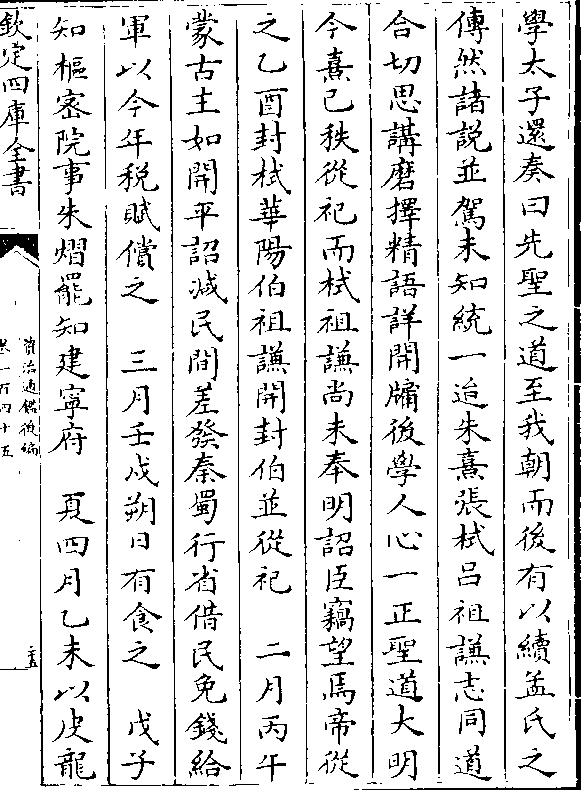 學太子還奏曰先聖之道至我朝而後有以續孟氏之
傳然諸説並駕未知統一迨朱熹張栻吕祖謙志同道
合切思講磨擇精語詳開牖後學人心一正聖道大明
今熹已秩從祀而栻祖謙尚未奉明詔臣竊望焉帝從
之乙酉封栻華陽伯祖謙開封伯並從祀　二月丙午
蒙古主如開平詔减民間差發秦蜀行省借民免錢給
軍以今年税賦償之　三月壬戌朔日有食之　戊子
知樞密院事朱熠罷知建寧府　夏四月乙未以皮龍
欽定四庫全書
資治通鑑後編
卷一百四十五